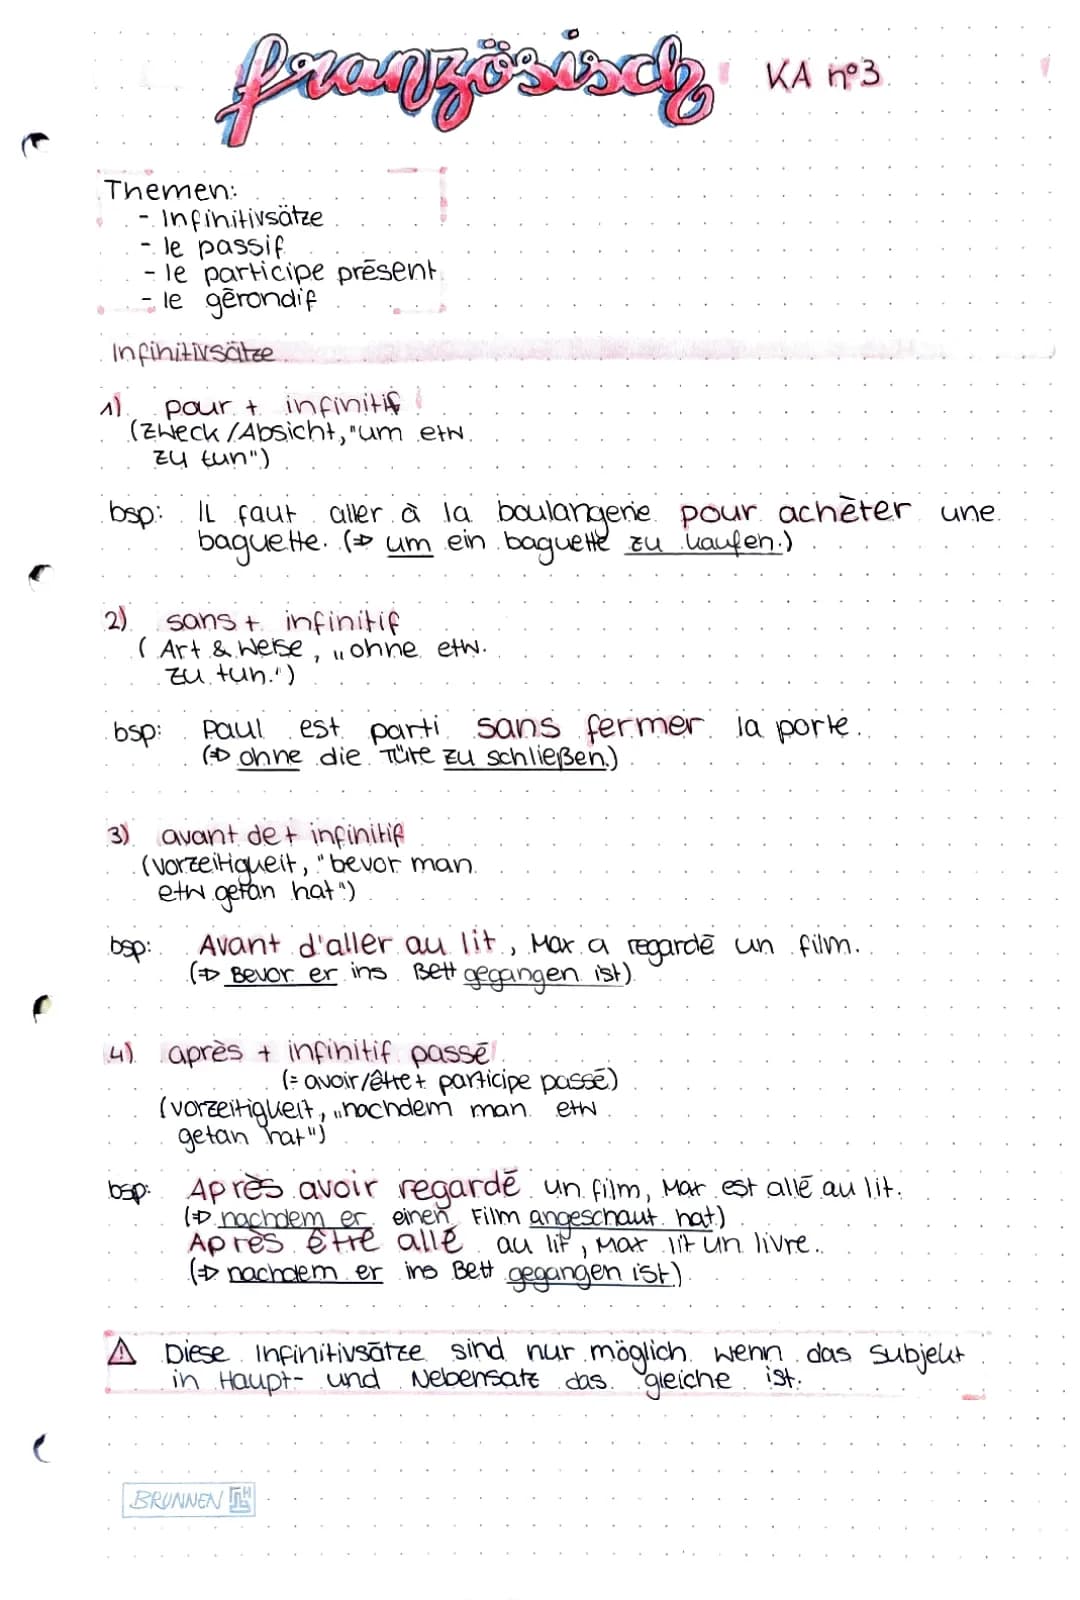 französisch KA n°3
Themen:
- Infinitivsätze
- le passif
- le participe présent
- le gérondif
Infinitivsätze
1) pour + infinitif
(Zweck/Absicht, "um etw.
zu tun")
bsp: Il faut aller à la boulangerie pour achèter une
baguette. (⇒ um ein baguette zu kaufen.)
2) sans + infinitif
(Art & Weise, „ohne etw.
zu tun.")
bsp: Paul est parti sans fermer la porte.
(⇒ ohne die Türe zu schließen.)
3) avant de + infinitif
(vorzeitigkeit, "bevor man
etw getan hat")
bsp: Avant d'aller au lit, Max a regardé un film.
(⇒ Bevor er ins Bett gegangen ist)
4) après + infinitif passé
(= avoir/être + participe passé)
(vorzeitigkeit, „nachdem man etw
getan hat")
bsp: Après avoir regardé un film, Max est allé au lit.
(⇒ nachdem er einen Film angeschaut hat)
Après être allé au lit, Max lit un livre.
(⇒ nachdem er ins Bett gegangen ist)
⚠ Diese Infinitivsätze sind nur möglich wenn das Subjekt
in Haupt- und Nebensatz das gleiche ist.
BRUNNEN